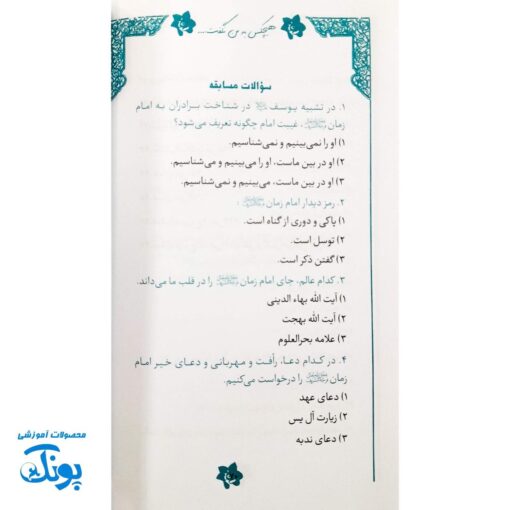 هیچکس به من نگفت....
سؤالات مسابقه
۱. در تشبیه یوسف در شناخت برادران به امام
زمان، غیبت امام چگونه تعریف می‌شود؟
۱) او را نمی‌بینیم و نمی‌شناسیم.
۲) او در بین ماست، او را می‌بینیم و نمی‌شناسیم.
۳) او در بین ماست، می‌بینیم و نمی‌شناسیم.
۲. رمز دیدار امام زمان :
۱) پاکی و دوری از گناه است.
۲) توسل است.
۳) گفتن ذکر است.
۳. کدام عالم، جای امام زمان را در قلب ما می‌داند.
۱) آیت الله بهاء الدینی
۲) آیت الله بهجت
۳) علامه بحرالعلوم
۴. در کدام دعا، رأفت و مهربانی و دعای خیر امام
زمان را درخواست می‌کنیم.
۱) دعای عهد
۲) زیارت آل یس
۳) دعای ندبه
محصولات آموزشی
پونک